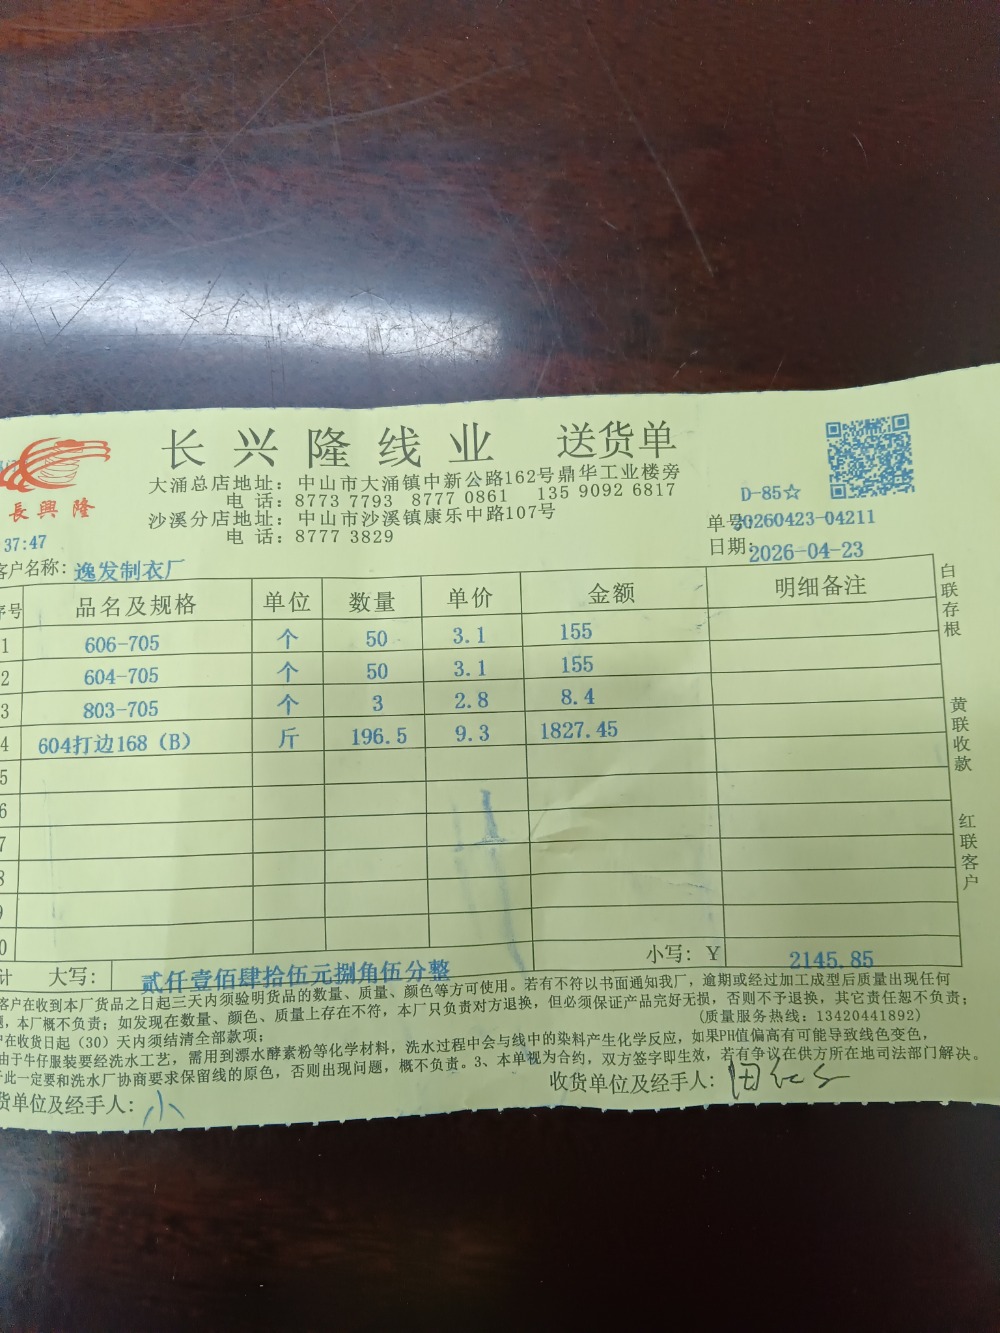 长兴隆线业 送货单
長興隆
大涌总店地址：中山市大涌镇中新公路162号鼎华工业楼旁
电 话：8773 7793 8777 0861 135 9092 6817
沙溪分店地址：中山市沙溪镇康乐中路107号
电 话：8777 3829
D-85☆
单号:20260423-04211
日期:2026-04-23
37:47
客户名称：逸发制衣厂
序号 品名及规格 单位 数量 单价 金额 明细备注
1 606-705 个 50 3.1 155
2 604-705 个 50 3.1 155
3 803-705 个 3 2.8 8.4
4 604打边168（B） 斤 196.5 9.3 1827.45
5
6
7
8
9
0
计 大写： 贰仟壹佰肆拾伍元捌角伍分整 小写：Y 2145.85
白联存根
黄联收款
红联客户
客户在收到本厂货品之日起三天内须验明货品的数量、质量、颜色等方可使用。若有不符以书面通知我厂，逾期或经过加工成型后质量出现任何
，本厂概不负责；如发现在数量、颜色、质量上存在不符，本厂只负责对方退换，但必须保证产品完好无损，否则不予退换，其它责任恕不负责；
在收货日起（30）天内须结清全部款项； (质量服务热线：13420441892)
由于牛仔服装要经洗水工艺，需用到漂水酵素粉等化学材料，洗水过程中会与线中的染料产生化学反应，如果PH值偏高有可能导致线色变色，
此一定要和洗水厂协商要求保留线的原色，否则出现问题，概不负责。3、本单视为合约，双方签字即生效，若有争议在供方所在地司法部门解决。
货单位及经手人：小
收货单位及经手人：